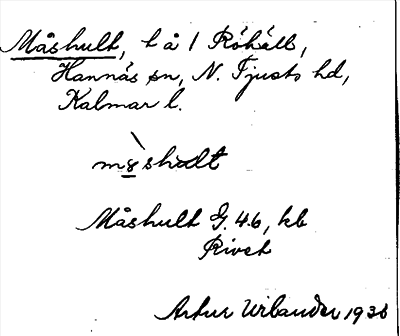 Måshult, t å 1 Röhäll,
Hannäs sn, N. Tjusts hd,
Kalmar l.
m8̲shalt
Måshult G. 46, kb
Rivet
Artur Urbander 1938